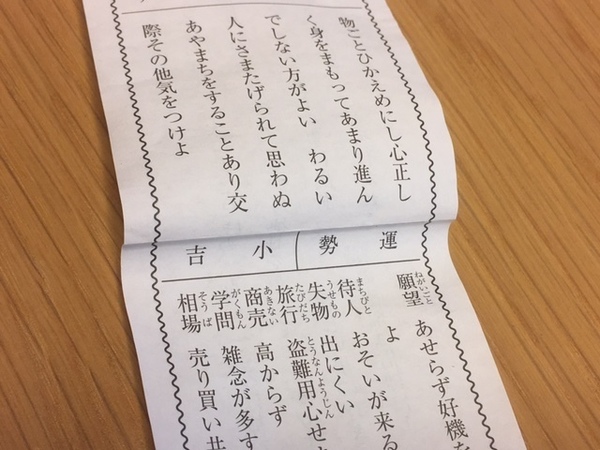 物ごとひかえめにし心正し
く身をまもってあまり進ん
でしない方がよい わるい
人にさまたげられて思わぬ
あやまちをすることあり交
際その他気をつけよ
運勢 小吉
ねがいごと
願望 あせらず好機を
よ
まちびと
待人 おそいが来る
うせもの
失物 出にくい
たびだち とうなんようじん
旅行 盗難用心せ
あきない
商売 高からず
がくもん
学問 雑念が多す
そうば
相場 売り買い